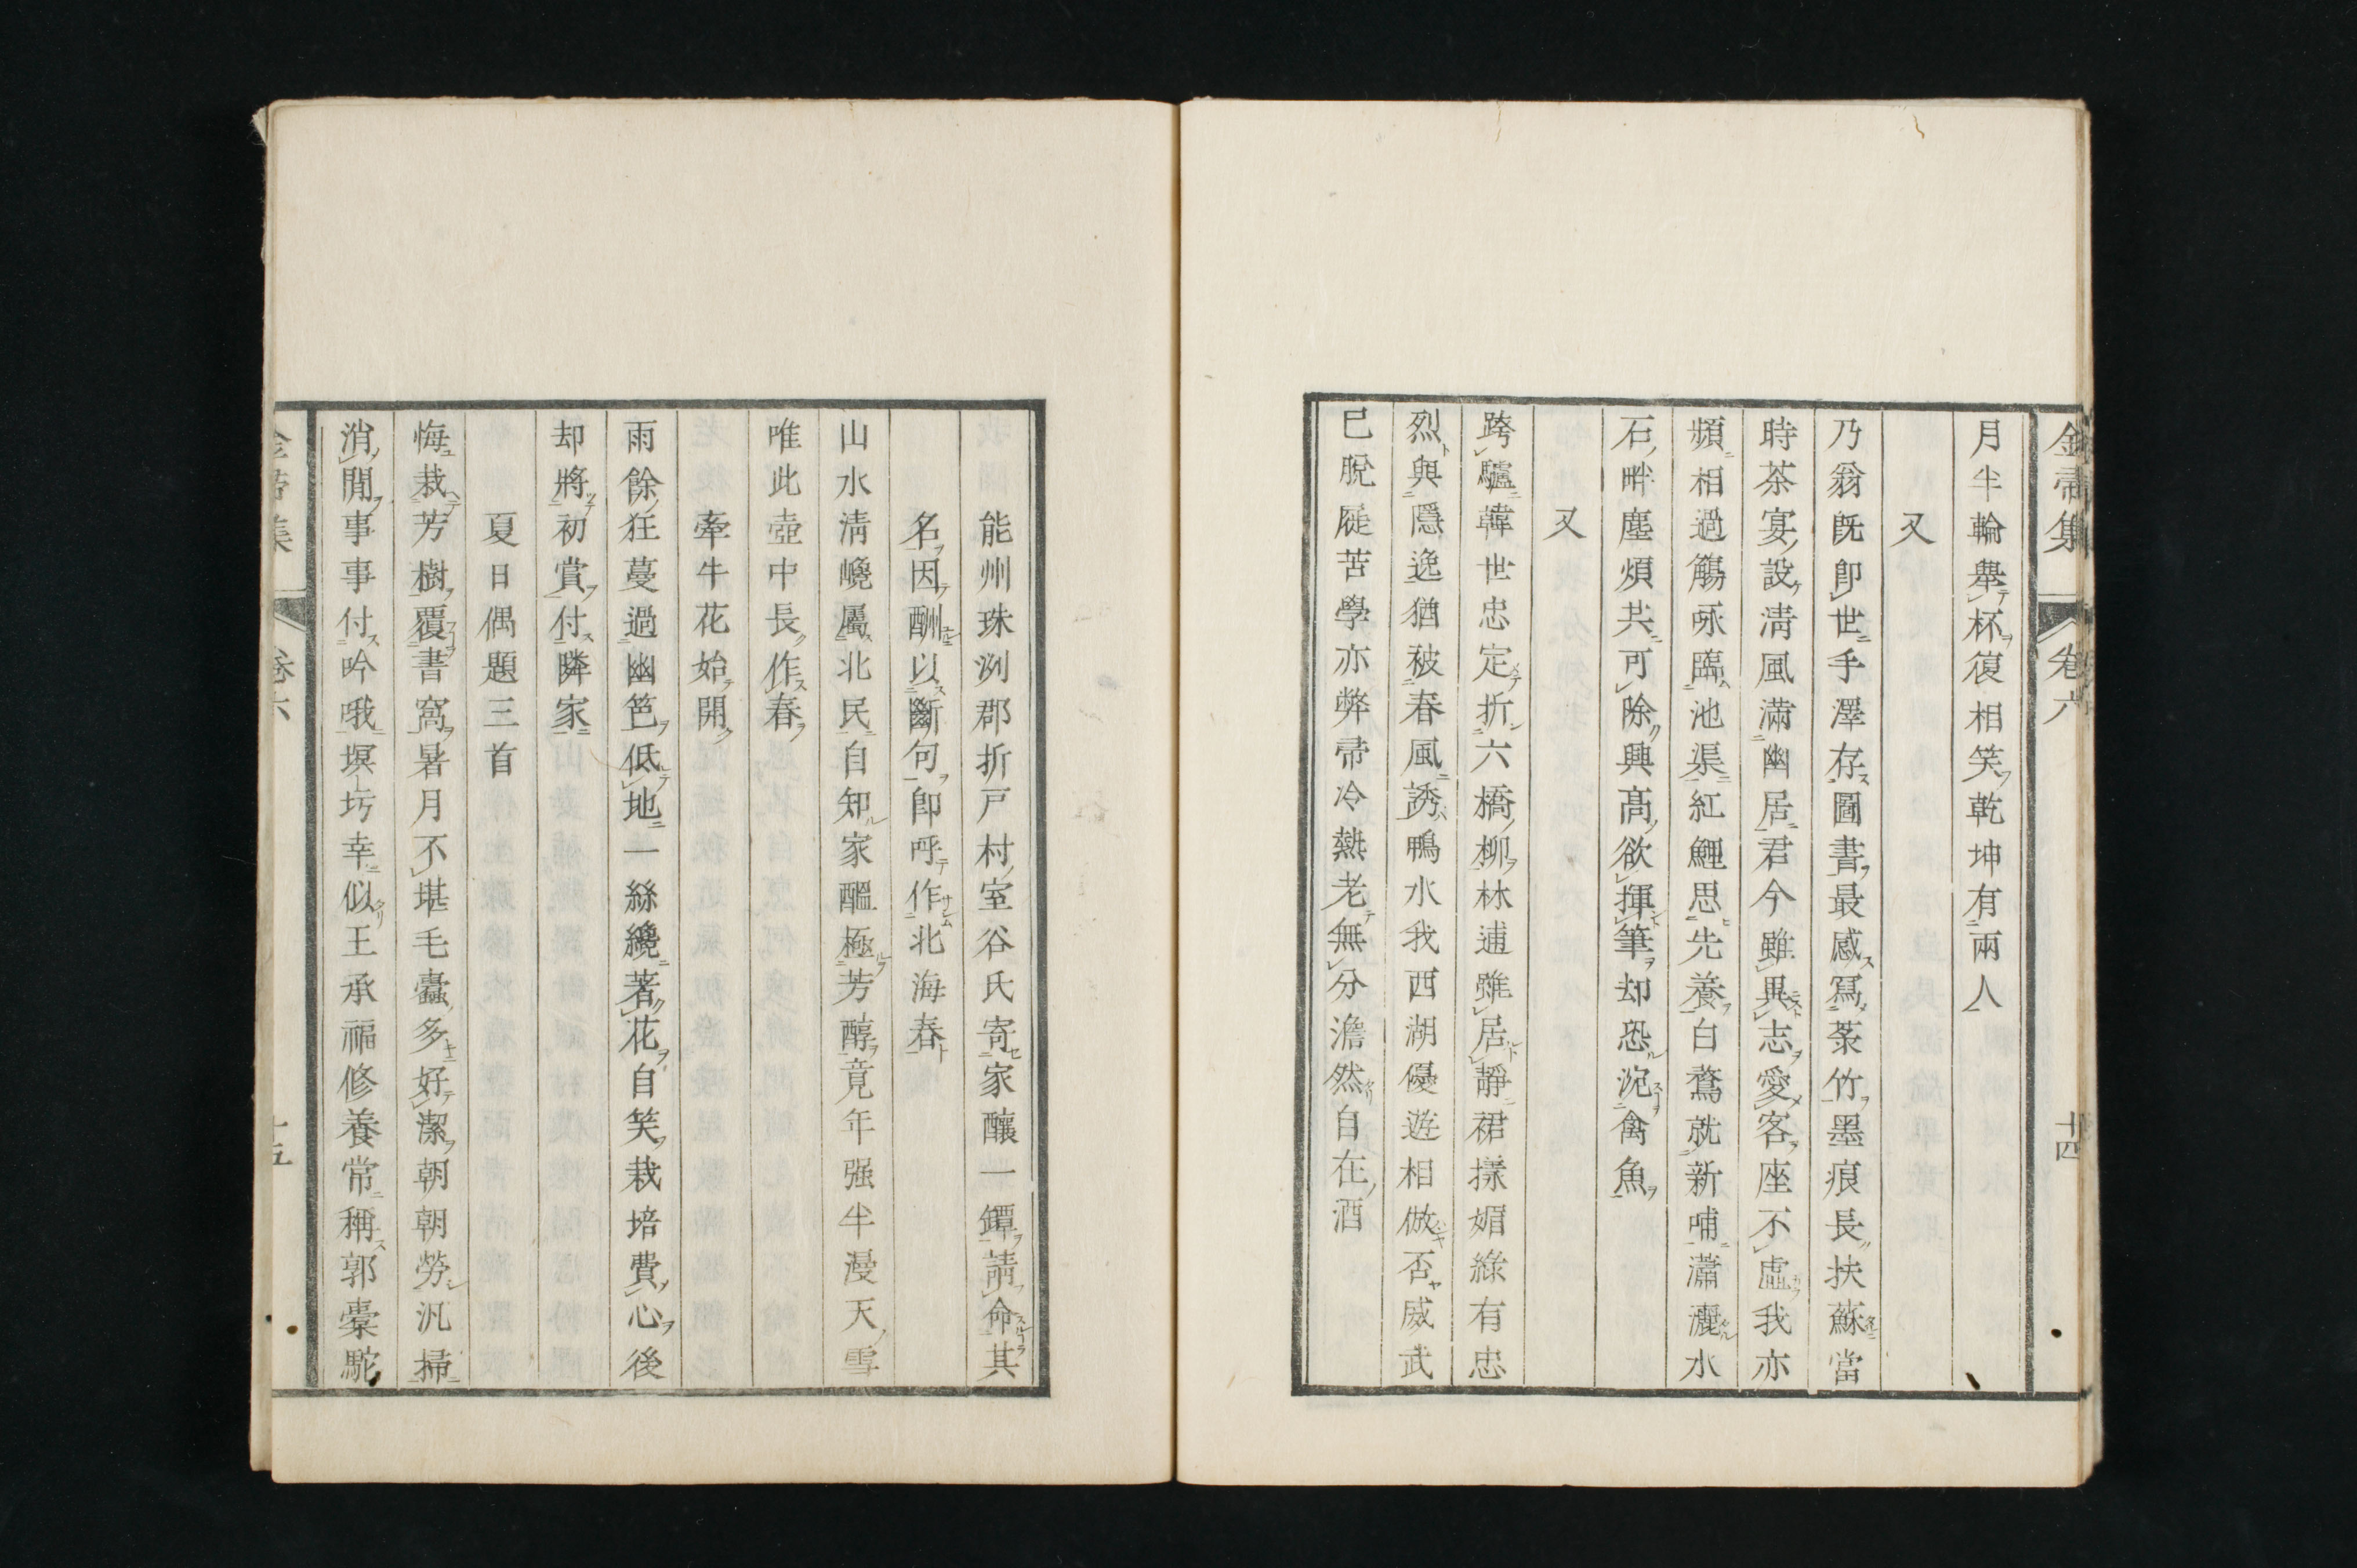 金帚集 卷六 十四
月半輪舉杯復相笑乾坤有兩人
又
乃翁既卽世手澤存圖書最感寫菉竹墨痕長扶蘇當
時茶宴設淸風滿幽居君今雖異志愛客座不虛我亦
頻相過觴咏臨池渠紅鯉思先養白鵞就新哺瀟灑水
石畔塵煩共可除興高欲揮筆却恐浼禽魚
又
跨驢韓世忠定折六橋柳林逋雖居靜裙搽媚綠有忠
烈與隱逸猶被春風誘鴨水我西湖優遊相倣否威武
已脫屣苦學亦弊帚冷熱老無分澹然自在酒
能州珠洲郡折戸村室谷氏寄家釀一罈請命其
名因酬以斷句卽呼作北海春
山水淸巉屬北民自知家醞極芳醇竟年强半漫天雪
唯此壺中長作春
牽牛花始開
雨餘狂蔓過幽笆低地一絲纔著花自笑栽培費心後
却將初賞付隣家
夏日偶題三首
悔栽芳樹覆書窩暑月不堪毛蠹多好潔朝朝勞汎掃
消閒事事付吟哦塓圬幸似王承福修養常稱郭橐駝
卷六